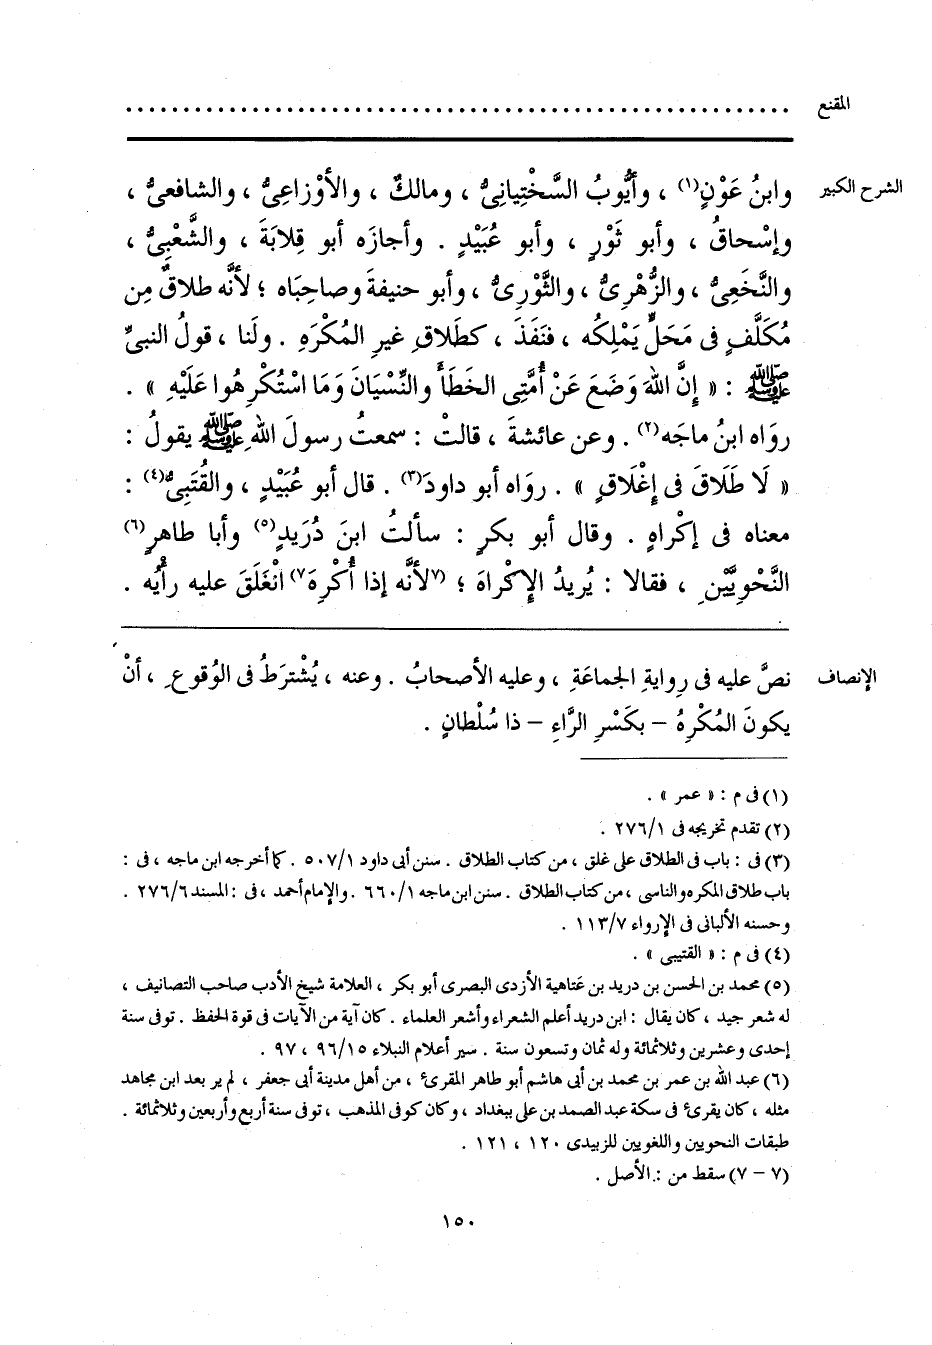 المقنع ..........................................................
الشرح الكبير وابنُ عَوْنٍ(١) ، وأَيُّوبُ السَّخْتِيانِىُّ ، ومالكٌ ، والأَوْزاعِىُّ ، والشافعىُّ ،
وإسْحاقُ ، وأبو ثَوْرٍ ، وأبو عُبَيْدٍ . وأجازَه أبو قِلابَةَ ، والشَّعْبِىُّ ،
والنَّخَعِىُّ ، والزُّهْرِىُّ ، والثَّوْرِىُّ ، وأبو حنيفةَ وصاحِبَاه ؛ لأنَّه طلاقٌ مِن
مُكَلَّفٍ فى مَحَلٍّ يَمْلِكُه ، فنَفَذَ ، كطَلاقِ غيرِ المُكْرَهِ . ولَنا ، قولُ النبىِّ
ﷺ : « إِنَّ اللهَ وَضَعَ عَنْ أُمَّتِى الخَطَأَ والنِّسْيَانَ وَمَا اسْتُكْرِهُوا عَلَيْهِ » .
روَاه ابنُ ماجَه(٢) . وعن عائشةَ ، قالتْ : سمعتُ رسولَ اللهِ ﷺ يقولُ :
« لَا طَلَاقَ فى إِغْلَاقٍ » . روَاه أبو داودَ(٣) . قال أبو عُبَيْدٍ ، والقُتَبِىُّ(٤) :
معناه فى إكْراهٍ . وقال أبو بكرٍ : سألتُ ابنَ دُرَيدٍ(٥) وأبا طاهرٍ(٦)
النَّحْوِيَّيْنِ ، فقالا : يُرِيدُ الإكْراهَ ؛ (٧لأنَّه إذا أُكْرِهَ٧) انْغَلَقَ عليه رأيُه .
الإنصاف نصَّ عليه فى رِوايةِ الجماعَةِ ، وعليه الأصحابُ . وعنه ، يُشْترَطُ فى الوُقوعِ ، أنْ
يكونَ المُكْرِهُ – بكَسْرِ الرَّاءِ – ذا سُلْطانٍ .
(١) فى م : « عمر » .
(٢) تقدم تخريجه فى ٢٧٦/١ .
(٣) فى : باب فى الطلاق على غلق ، من كتاب الطلاق . سنن أبى داود ٥٠٧/١ . كما أخرجه ابن ماجه ، فى :
باب طلاق المكره والناسى ، من كتاب الطلاق . سنن ابن ماجه ٦٦٠/١ . والإمام أحمد ، فى : المسند ٢٧٦/٦ .
وحسنه الألبانى فى الإرواء ١١٣/٧ .
(٤) فى م : « القتيبى » .
(٥) محمد بن الحسن بن دريد بن عَتاهية الأزدى البصرى أبو بكر ، العلامة شيخ الأدب صاحب التصانيف ،
له شعر جيد ، كان يقال : ابن دريد أعلم الشعراء وأشعر العلماء . كان آية من الآيات فى قوة الحفظ . توفى سنة
إحدى وعشرين وثلاثمائة وله ثمان وتسعون سنة . سير أعلام النبلاء ٩٦/١٥ ، ٩٧ .
(٦) عبد الله بن عمر بن محمد بن أبى هاشم أبو طاهر المقرئ ، من أهل مدينة أبى جعفر ، لم ير بعد ابن مجاهد
مثله ، كان يقرئ فى سكة عبد الصمد بن على ببغداد ، وكان كوفى المذهب ، توفى سنة أربع وأربعين وثلاثمائة .
طبقات النحويين واللغويين للزبيدى ١٢٠ ، ١٢١ .
(٧ – ٧) سقط من : الأصل .
١٥٠